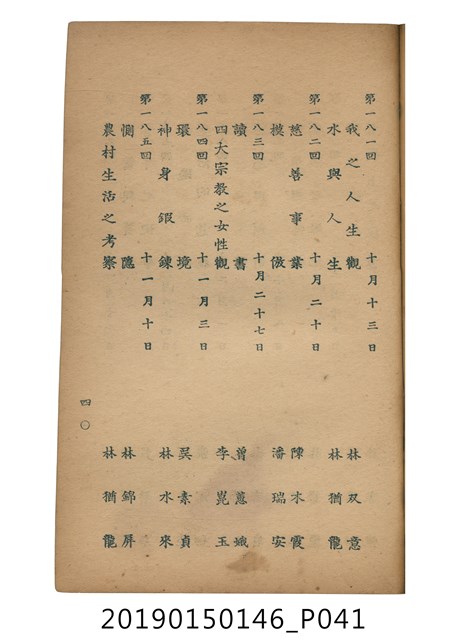 第一八一回　十月十三日
我之人生觀　林双意
水與人生　林猶龍
第一八二回　十月二十日
慈善事業　陳木霞
模倣　潘瑞安
第一八三回　十月二十七日
讀書　曾蕙娥
四大宗教之女性觀　李崑玉
第一八四回　十一月三日
環境　吴素貞
神身鍛鍊　林水來
第一八五回　十一月十日
惻隱　林錦屏
農村生活之考察　林猶龍
四〇
20190150146_P041